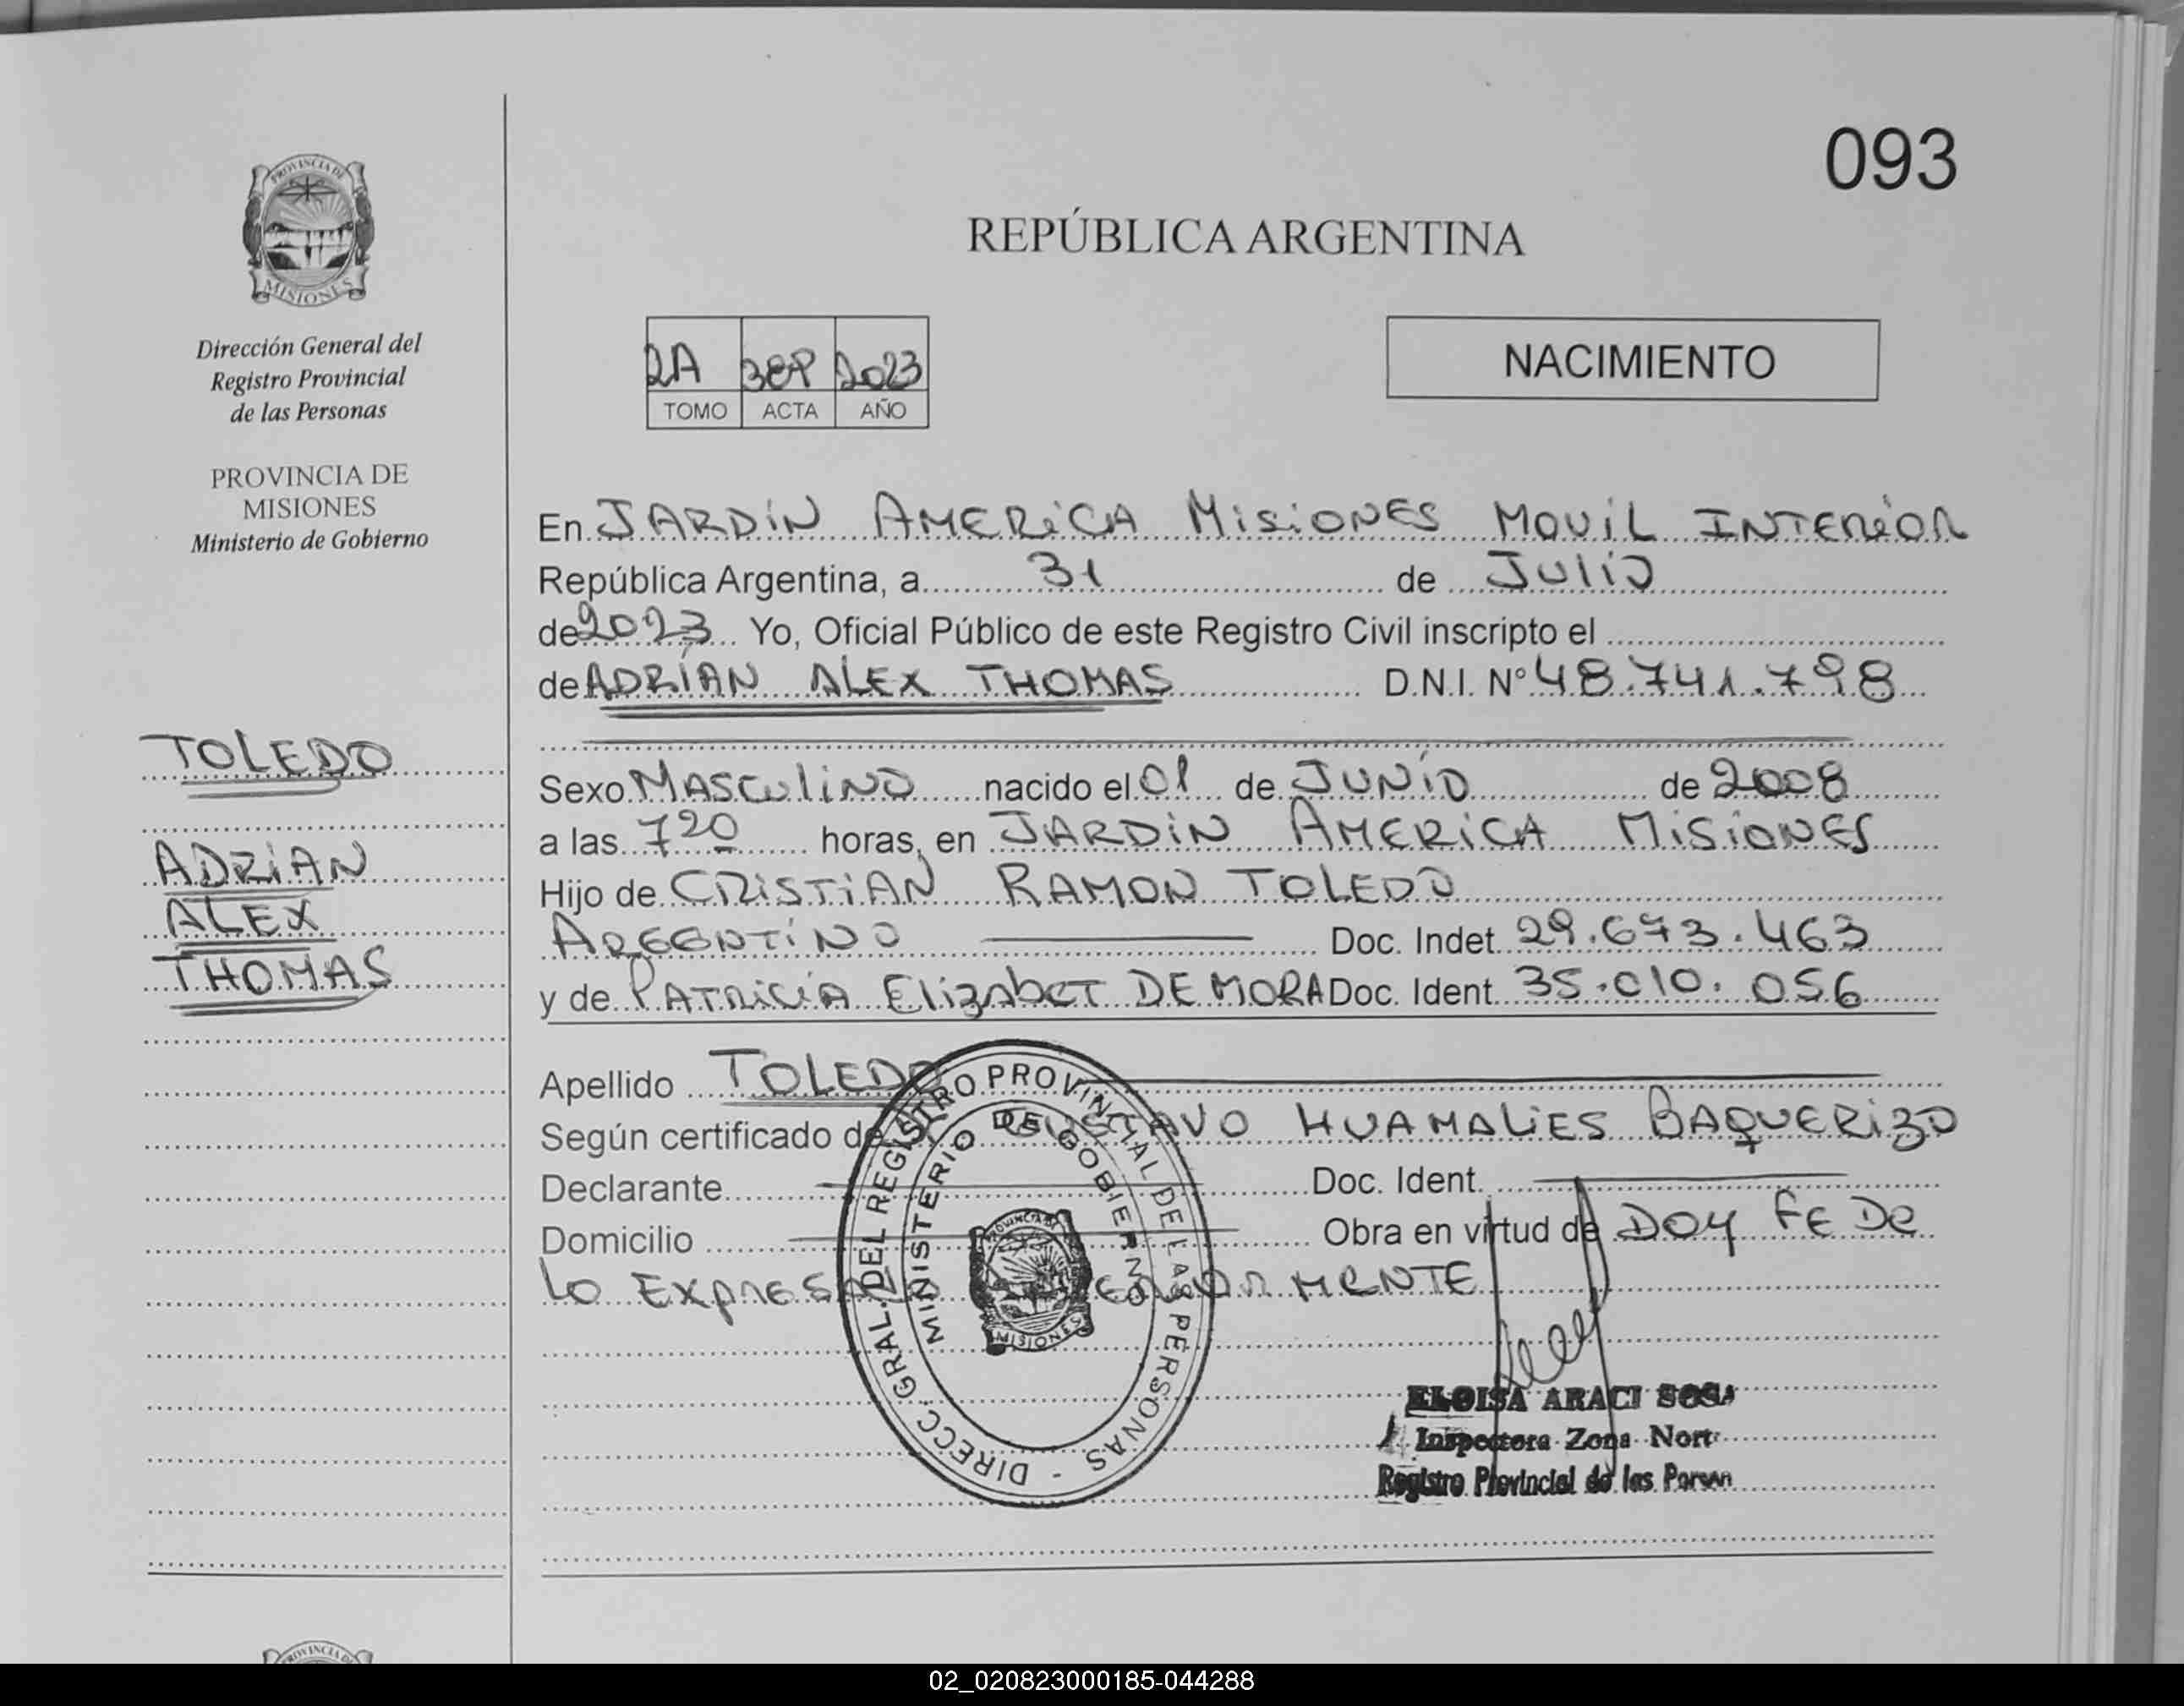 093
PROVINCIA DE
MISIONES
Dirección General del
Registro Provincial
de las Personas
PROVINCIA DE
MISIONES
Ministerio de Gobierno
TOLEDO
ADRIAN
ALEX
THOMAS
REPÚBLICA ARGENTINA
2A 2023
TOMO ACTA AÑO
NACIMIENTO
En JARDIN AMERICA MISIONES MOVIL INTERIOR
República Argentina, a 31 de JULIO
de 2023 Yo, Oficial Público de este Registro Civil inscripto el
de ADRIAN ALEX THOMAS D.N.I. N° 48.741.798
Sexo MASCULINO nacido el 01 de JUNIO de 2008
a las 7 20 horas, en JARDIN AMERICA MISIONES
Hijo de CRISTIAN RAMON TOLEDO
ARGENTINO Doc. Indet. 29.673.463
y de PATRICIA ElizabeT DE MORA Doc. Ident. 35.010.056
Apellido TOLEDO
Según certificado de GUSTAVO HUAMALIES BAQUERIZO
Declarante Doc. Ident.
Domicilio Obra en virtud de DOY FE DE
LO EXPRESADO ANTERIORMENTE
DIRECC. GRAL. DEL REGISTRO PROVINCIAL DE LAS PERSONAS -
MINISTERIO DE GOBIERNO
PROVINCIA DE
MISIONES
ELOISA ARACI SOSA
Inspectora Zona Nort
Registro Provincial de las Person
02_020823000185-044288